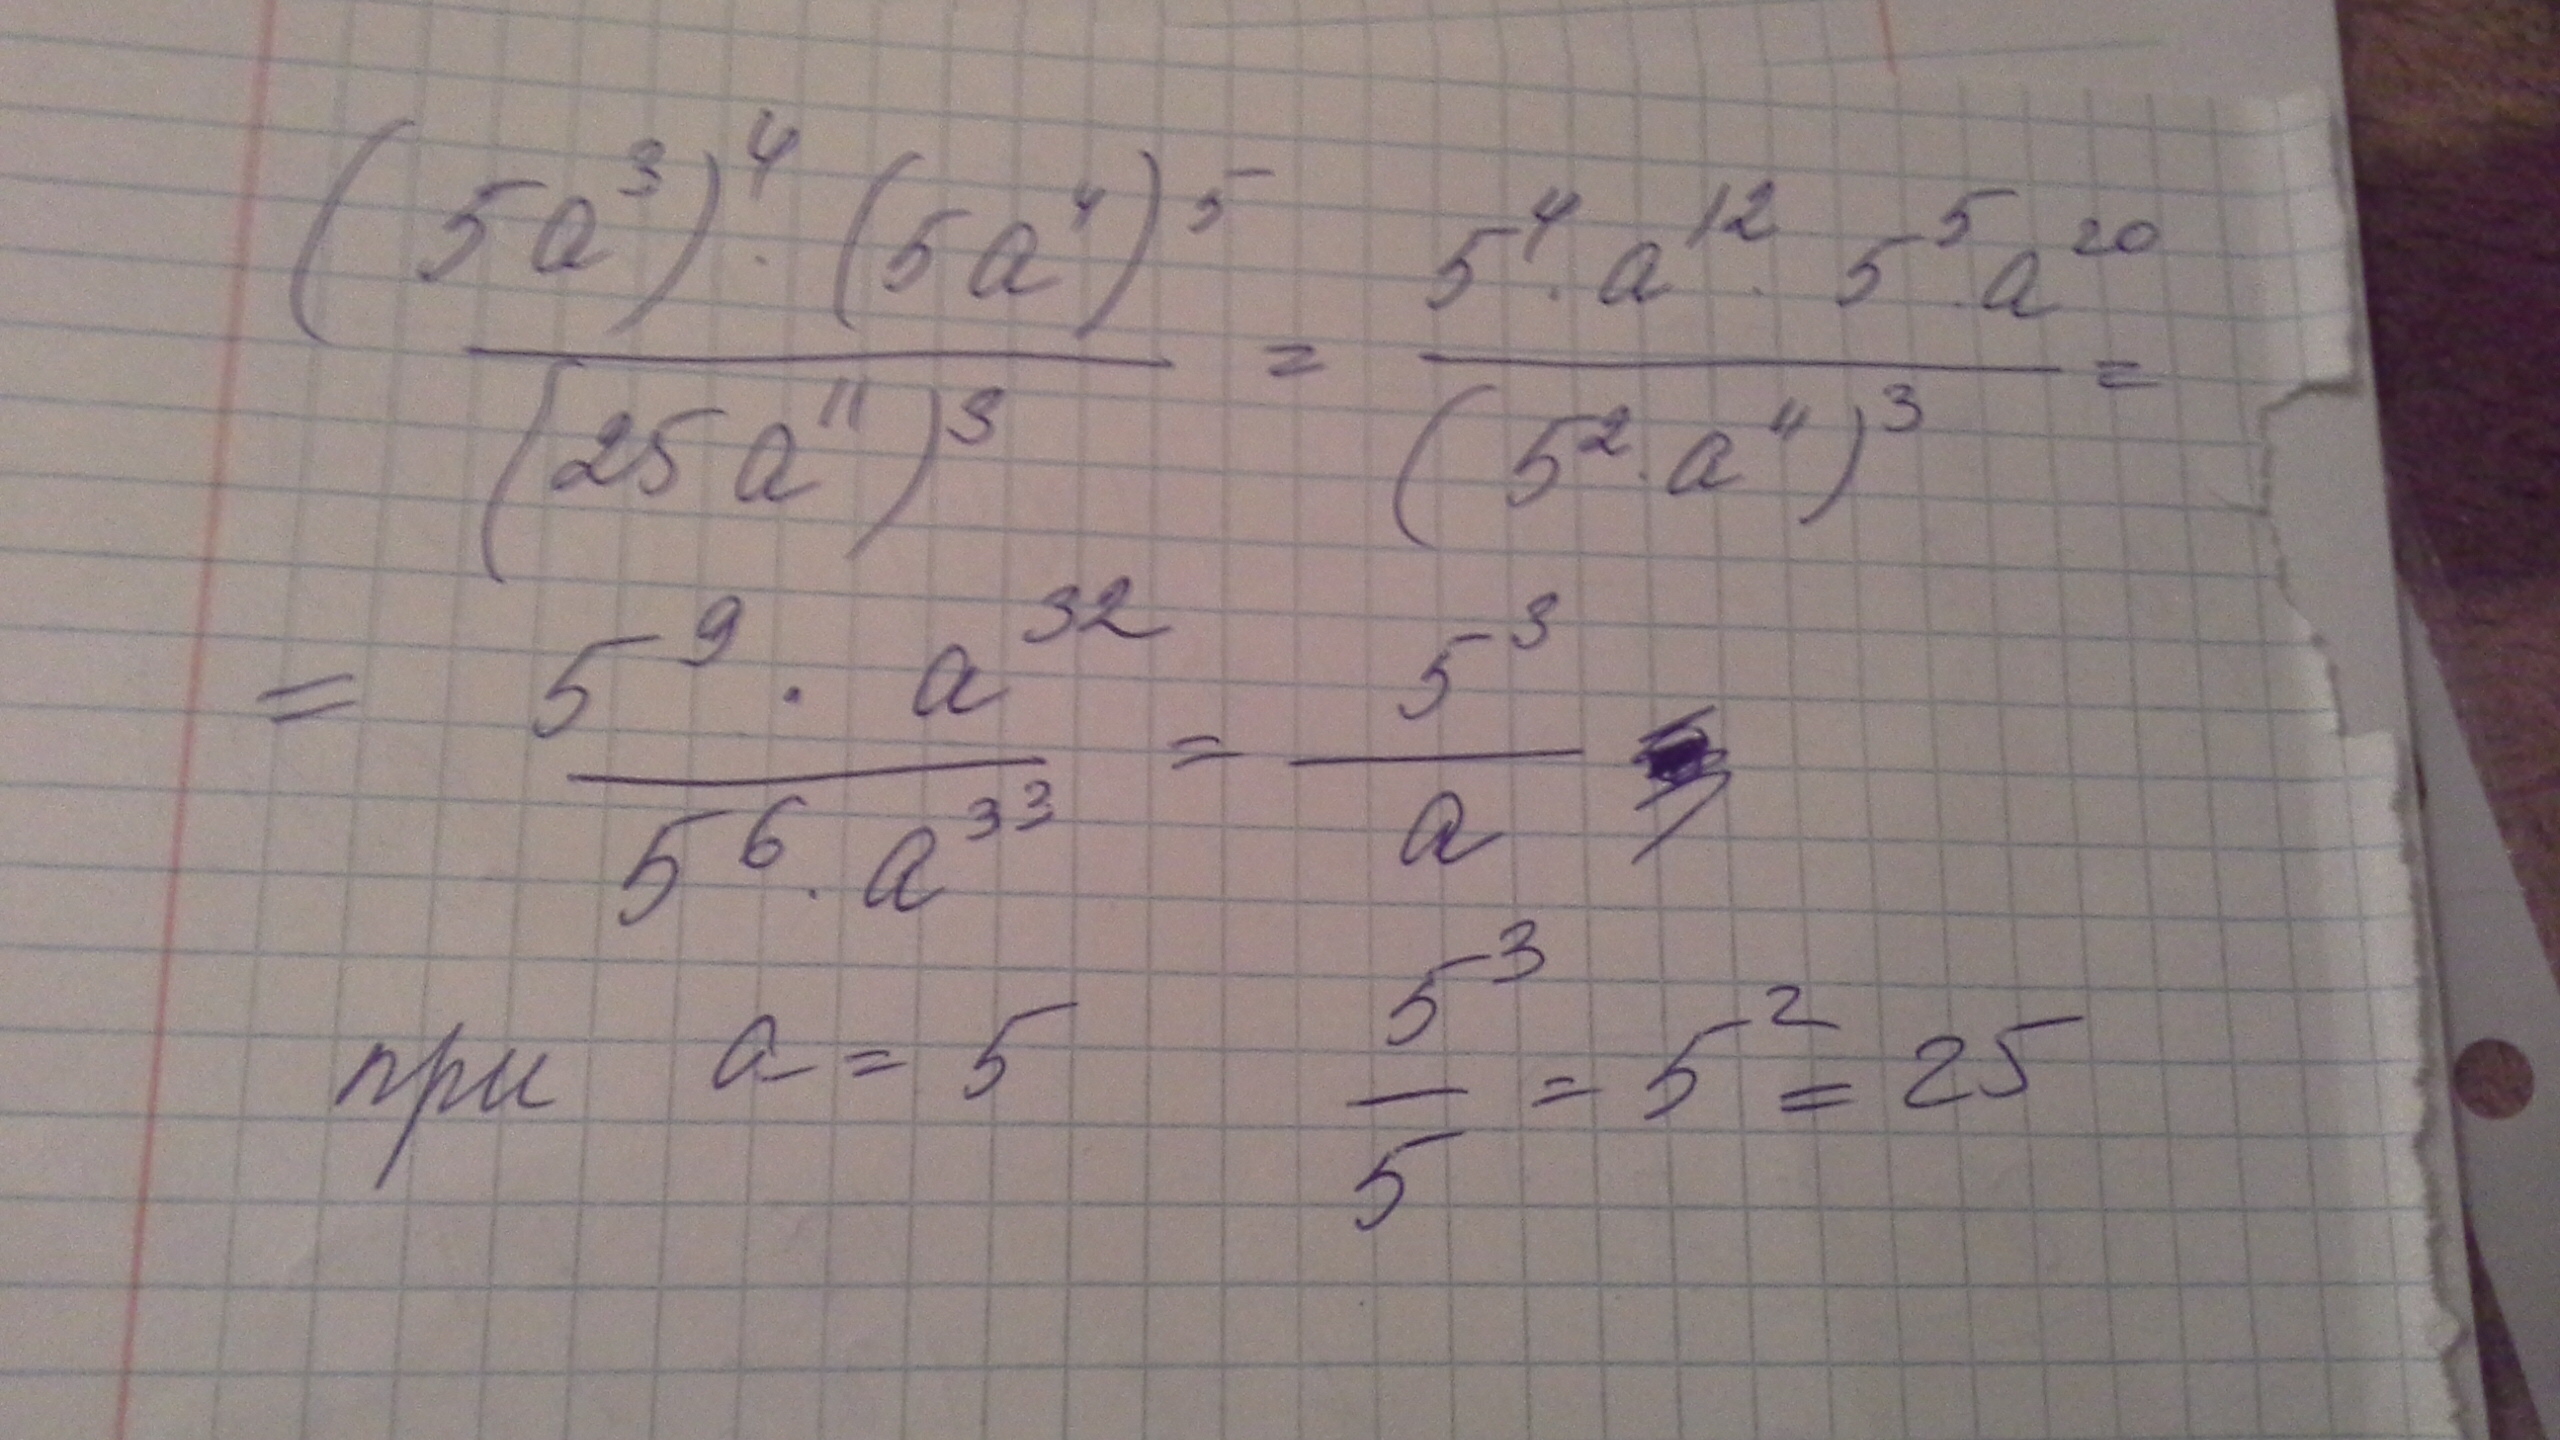 (5a³)⁴ · (5a⁴)⁵ / (25a¹¹)³ = 5⁴ · a¹² · 5⁵ · a²⁰ / (5² · a¹¹)³ =
= 5⁹ · a³² / 5⁶ · a³³ = 5³ / a
при a = 5 5³ / 5 = 5² = 25